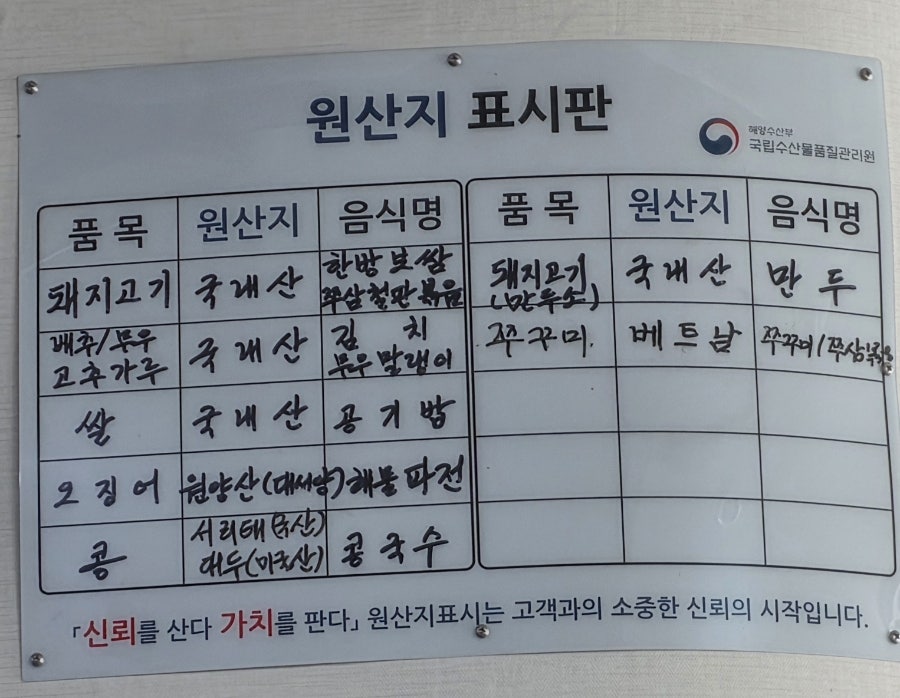 원산지 표시판
해양수산부
국립수산물품질관리원
품 목 원산지 음식명
돼지고기 국내산 한방보쌈
쭈삼철판볶음
배추/무우 고추가루 국내산 김 치
무우말랭이
쌀 국내산 공기밥
오징어 원양산(대서양) 해물파전
콩 서리태(국산)
대두(미국산) 콩국수
품 목 원산지 음식명
돼지고기
(만두소) 국내산 만 두
쭈꾸미. 베트남 쭈꾸미/쭈삼볶음
「신뢰를 산다 가치를 판다」 원산지표시는 고객과의 소중한 신뢰의 시작입니다.